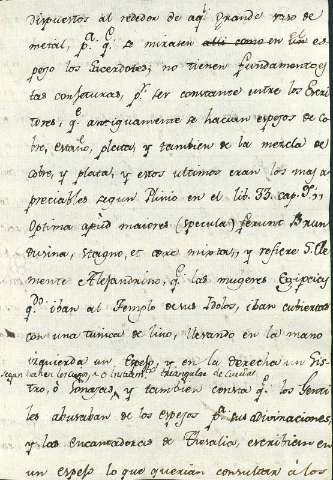 dispuestos al rededor de aql. grande vaso de
metal, pa. qe. se mirasen alli como en el es-
pejo los Sacerdotes; no tienen fundamento es-
tas conjeturas, pr. ser constante entre los Escri-
tores, qe. antiguamente se hacian espejos de co-
bre, estaño, plata, y tambien de la mezcla de
cobre, y plata, y estos ultimos eran los mas a
preciables segun Plinio en el lib. 33. cap. 9. "
Optima apud maiores (specula) ferunt Brun
dusina, stagno, et aere mixta," y refiere S. Cle
mente Alejandrino, qe. las mugeres Egipcias
qdo. iban al Templo de sus Idolos, iban cubiertas
con una tunica de lino, llevando en la mano
izquierda un Espejo, y en la derecha un Sis-
tro, ó Sonajas, y tambien consta qe. los Genti
segun
ó instrumto. triangular de Cuerdas
les abusaban de los espejos pa. sus adivinaciones,
y las encantadoras de Thesalia, escribian en
un espejo lo que querian consultar á los